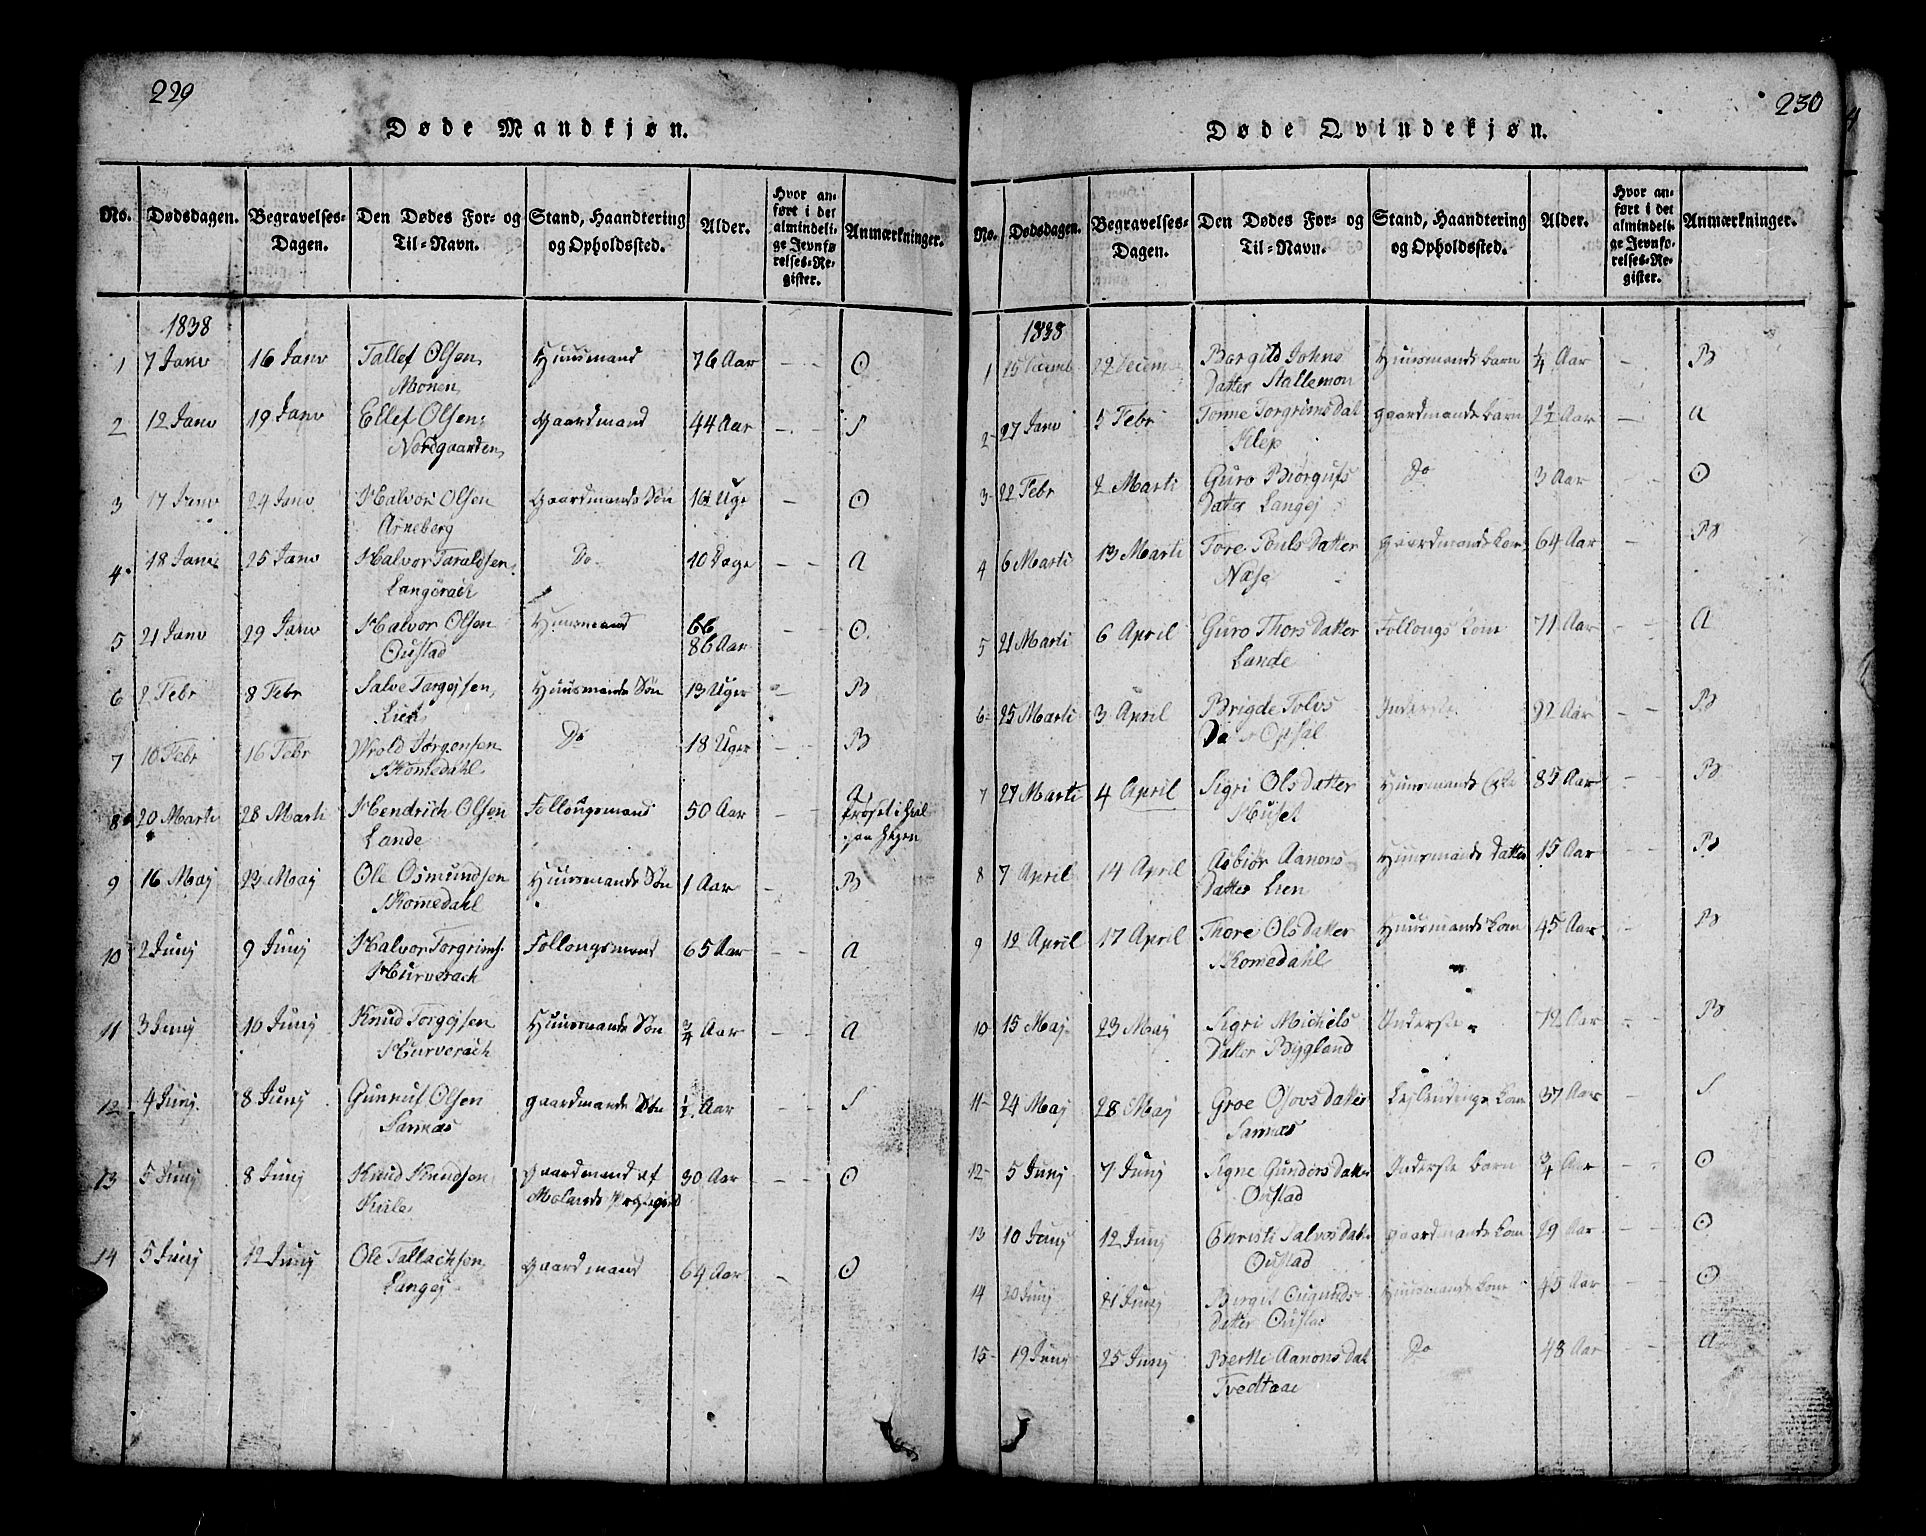 229
Døde Mandkjøn.
No. Dødsdagen. Begravelses-Dagen. Den Dødes For- og Til-Navn. Stand, Haandtering og Opholdssted. Alder. Hvor anført i det almindelige Jevnførelses-Register. Anmærkninger.
1838
1 7 Janv 16 Janv Tallef Olsen Huusmand 76 Aar - - ⊙
Monen
2 12 Janv 19 Janv Ellef Olsen Gaardmand 44 Aar - - S
Nordgaarden
3 17 Janv 24 Janv Halvor Olsen Gaardmands Søn 16½ Uge - ⊙
Arneberg
4 18 Janv 25 Janv Halvor Taraldsen Do 10 Dage - - A
Langerach
5 21 Janv 29 Janv Halvor Olsen Huusmand 66 - - ⊙
Oustad 86 Aar
6 2 Febr 8 Febr Salve Targejsen Huusmands Søn 13 Uger - B
Lien
7 10 Febr 16 Febr Wrold Jørgensen Do 18 Uger - - B
Skomedahl
8 20 Marti 28 Marti Hendrich Olsen Follougsmand 50 Aar - A
Lande
9 16 Maj 23 Maj Ole Osmundsen Huusmands Søn 1 Aar - B
Skomedahl
10 2 Junj 9 Junj Halvor Torgrims. Follongsmand 65 Aar - - A
Hurverach
11 3 Junj 10 Junj Knud Torgejsen Huusmands Søn ¾ Aar - - A
Hurverach
12 4 Junj 8 Junj Gunnuf Olsen gaardmands Søn ½ Aar - - S
Sannæs
13 5 Junj 8 Junj Knud Knudsen gaardmand af 30 Aar - - ⊙
Kile Molands
14 5 Junj 12 Junj Ole Tallachsen gaardmand 64 Aar - ⊙
Langej
230
Døde Qvindekjøn.
No. Dødsdagen. Begravelses-Dagen. Den Dødes For- og Til-Navn. Stand, Haandtering og Opholdssted. Alder. Hvor anført i det almindelige Jevnførelses-Register. Anmærkninger.
1838
1 15 Decemb 22 Decem Borgild Johns Huusmands barn ¼ Aar - B
Datter Stallemon
2 27 Janv 5 Febr Tonne Torgrims Dat gaardmands barn 2½ Aar - A
Klep
3 22 Febr 2 Marti Guro Biørgufs Do 3 Aar - ⊙
Datter Langej
4 6 Marti 13 Marti Tore Pouls Datter gaardmands kone 64 Aar B
Næse
5 21 Marti 6 April Guro Thors Datter Follongs kone 71 Aar - - A
Lande
6 25 Marti 3 April Brigde Tolvs Inderste 92 Aar - - B
Da r Opsal
7 27 Marti 4 April Sigri Ols Datter Huusmands 85 Aar - - B
Huset
8 7 April 14 April Asbiør Aanons Huusmands Datter 15 Aar B
Datter Lien
9 12 April 17 April Thore Ols Datter Huusmands kone 45 Aar - B
Skomedahl
10 15 Maj 23 Maj Sigri Michels Inderste 72 Aar - - B
Datter Bygland
11 24 Maj 28 Maj Groe Osovs Datter Lejlendings kone 37 Aar - - S
Sannæs
12 5 Junj 7 Junj Signe Gunders Datter Inderste barn ¾ Aar - - ⊙
Oustad
13 10 Junj 12 Junj Christi Salves Dat. gaardmands kone 29 Aar - - ⊙
Oustad
14 20 Junj 21 Junj Birgit Huusmands kone 45 Aar - - ⊙
datter Oustad
15 19 Junj 25 Junj Berthe Aanons Dat Do 48 Aar - - A
Tvedtaae